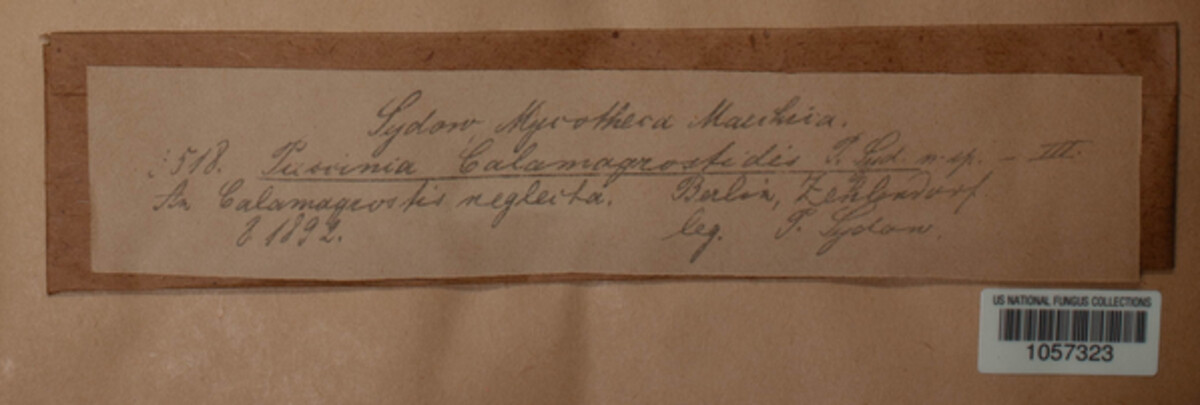 Sydow, Mycotheca Marchica.
518. Puccinia Calamagrostidis P. Syd. n. sp. – III.
An Calamagrostis neglecta. Berlin, Zehlendorf
8 1892. leg. P. Sydow.
US NATIONAL FUNGUS COLLECTIONS
1057323